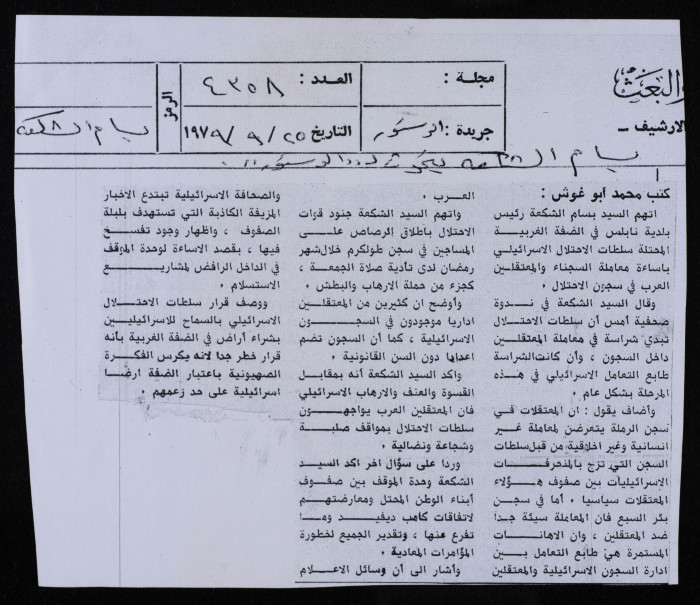 والبَعَث
الارشيف -
مجلة :
العدد : ٤٣٥٨
الرمز
جريدة : الدستور
التاريخ ٢٥ / ٩ / ١٩٧٩
بسام الشكعة
بسام الشكعة يتحدث لـ "الدستور" .
كتب محمد أبو غوش :
اتهم السيد بسام الشكعة رئيس
بلدية نابلس في الضفة الغربية
المحتلة سلطات الاحتلال الاسرائيلي
باساءة معاملة السجناء والمعتقلين
العرب في سجون الاحتلال .
وقال السيد الشكعة في ندوة
صحفية أمس أن سلطات الاحتلال
تبدي شراسة في معاملة المعتقلين
داخل السجون ، وأن كانت الشراسة
طابع التعامل الاسرائيلي في هذه
المرحلة بشكل عام .
وأضاف يقول : ان المعتقلات في
سجن الرملة يتعرضن لمعاملة غير
انسانية وغير اخلاقية من قبل سلطات
السجن التي تزج بالمنحرفات
الاسرائيليات بين صفوف هؤلاء
المعتقلات سياسيا . أما في سجن
بئر السبع فان المعاملة سيئة جدا
ضد المعتقلين ، وان الاهانات
المستمرة هي طابع التعامل بين
ادارة السجون الاسرائيلية والمعتقلين
العرب .
واتهم السيد الشكعة جنود قوات
الاحتلال باطلاق الرصاص على
المساجين في سجن طولكرم خلال شهر
رمضان لدى تأدية صلاة الجمعة ،
كجزء من حملة الارهاب والبطش .
وأوضح ان كثيرين من المعتقلين
اداريا موجودون في السجون
الاسرائيلية ، كما أن السجون تضم
اعدادا دون السن القانونية .
واكد السيد الشكعة أنه بمقابل
القسوة والعنف والارهاب الاسرائيلي
فان المعتقلين العرب يواجهون
سلطات الاحتلال بمواقف صلبة
وشجاعة ونضالية .
وردا على سؤال اخر اكد السيد
الشكعة وحدة الموقف بين صفوف
أبناء الوطن المحتل ومعارضتهم
لاتفاقات كامب ديفيد وما
تفرع عنها ، وتقدير الجميع لخطورة
المؤامرات المعادية .
وأشار الى أن وسائل الاعلام
والصحافة الاسرائيلية تبتدع الاخبار
المزيفة الكاذبة التي تستهدف بلبلة
الصفوف ، واظهار وجود تفسخ
فيها ، بقصد الاساءة لوحدة الموقف
في الداخل الرافض لمشاريع
الاستسلام .
ووصف قرار سلطات الاحتلال
الاسرائيلي بالسماح للاسرائيليين
بشراء أراض في الضفة الغربية بأنه
قرار خطر جدا لانه يكرس الفكرة
الصهيونية باعتبار الضفة ارضا
اسرائيلية على حد زعمهم .